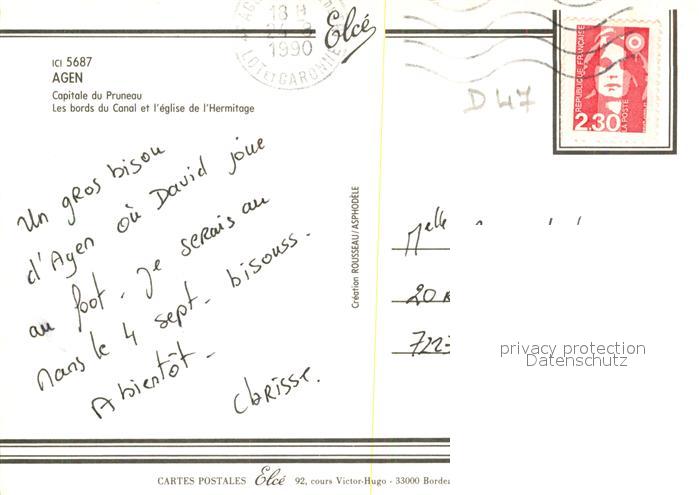 18 H
1990
LOT ET GARONNE
Elcé
ICI 5687
AGEN
Capitale du Pruneau
Les bords du Canal et l'église de l'Hermitage
D 47
REPUBLIQUE FRANÇAISE
2,30
LA POSTE
Un gros bisou
d'Agen où David joue
au foot. Je serais au
Mans le 4 sept. bisouss.
A bientôt.
Clarisse.
Création ROUSSEAU/ASPHODÈLE
Melle
20
privacy protection
Datenschutz
CARTES POSTALES Elcé 92, cours Victor-Hugo - 33000 Bordea